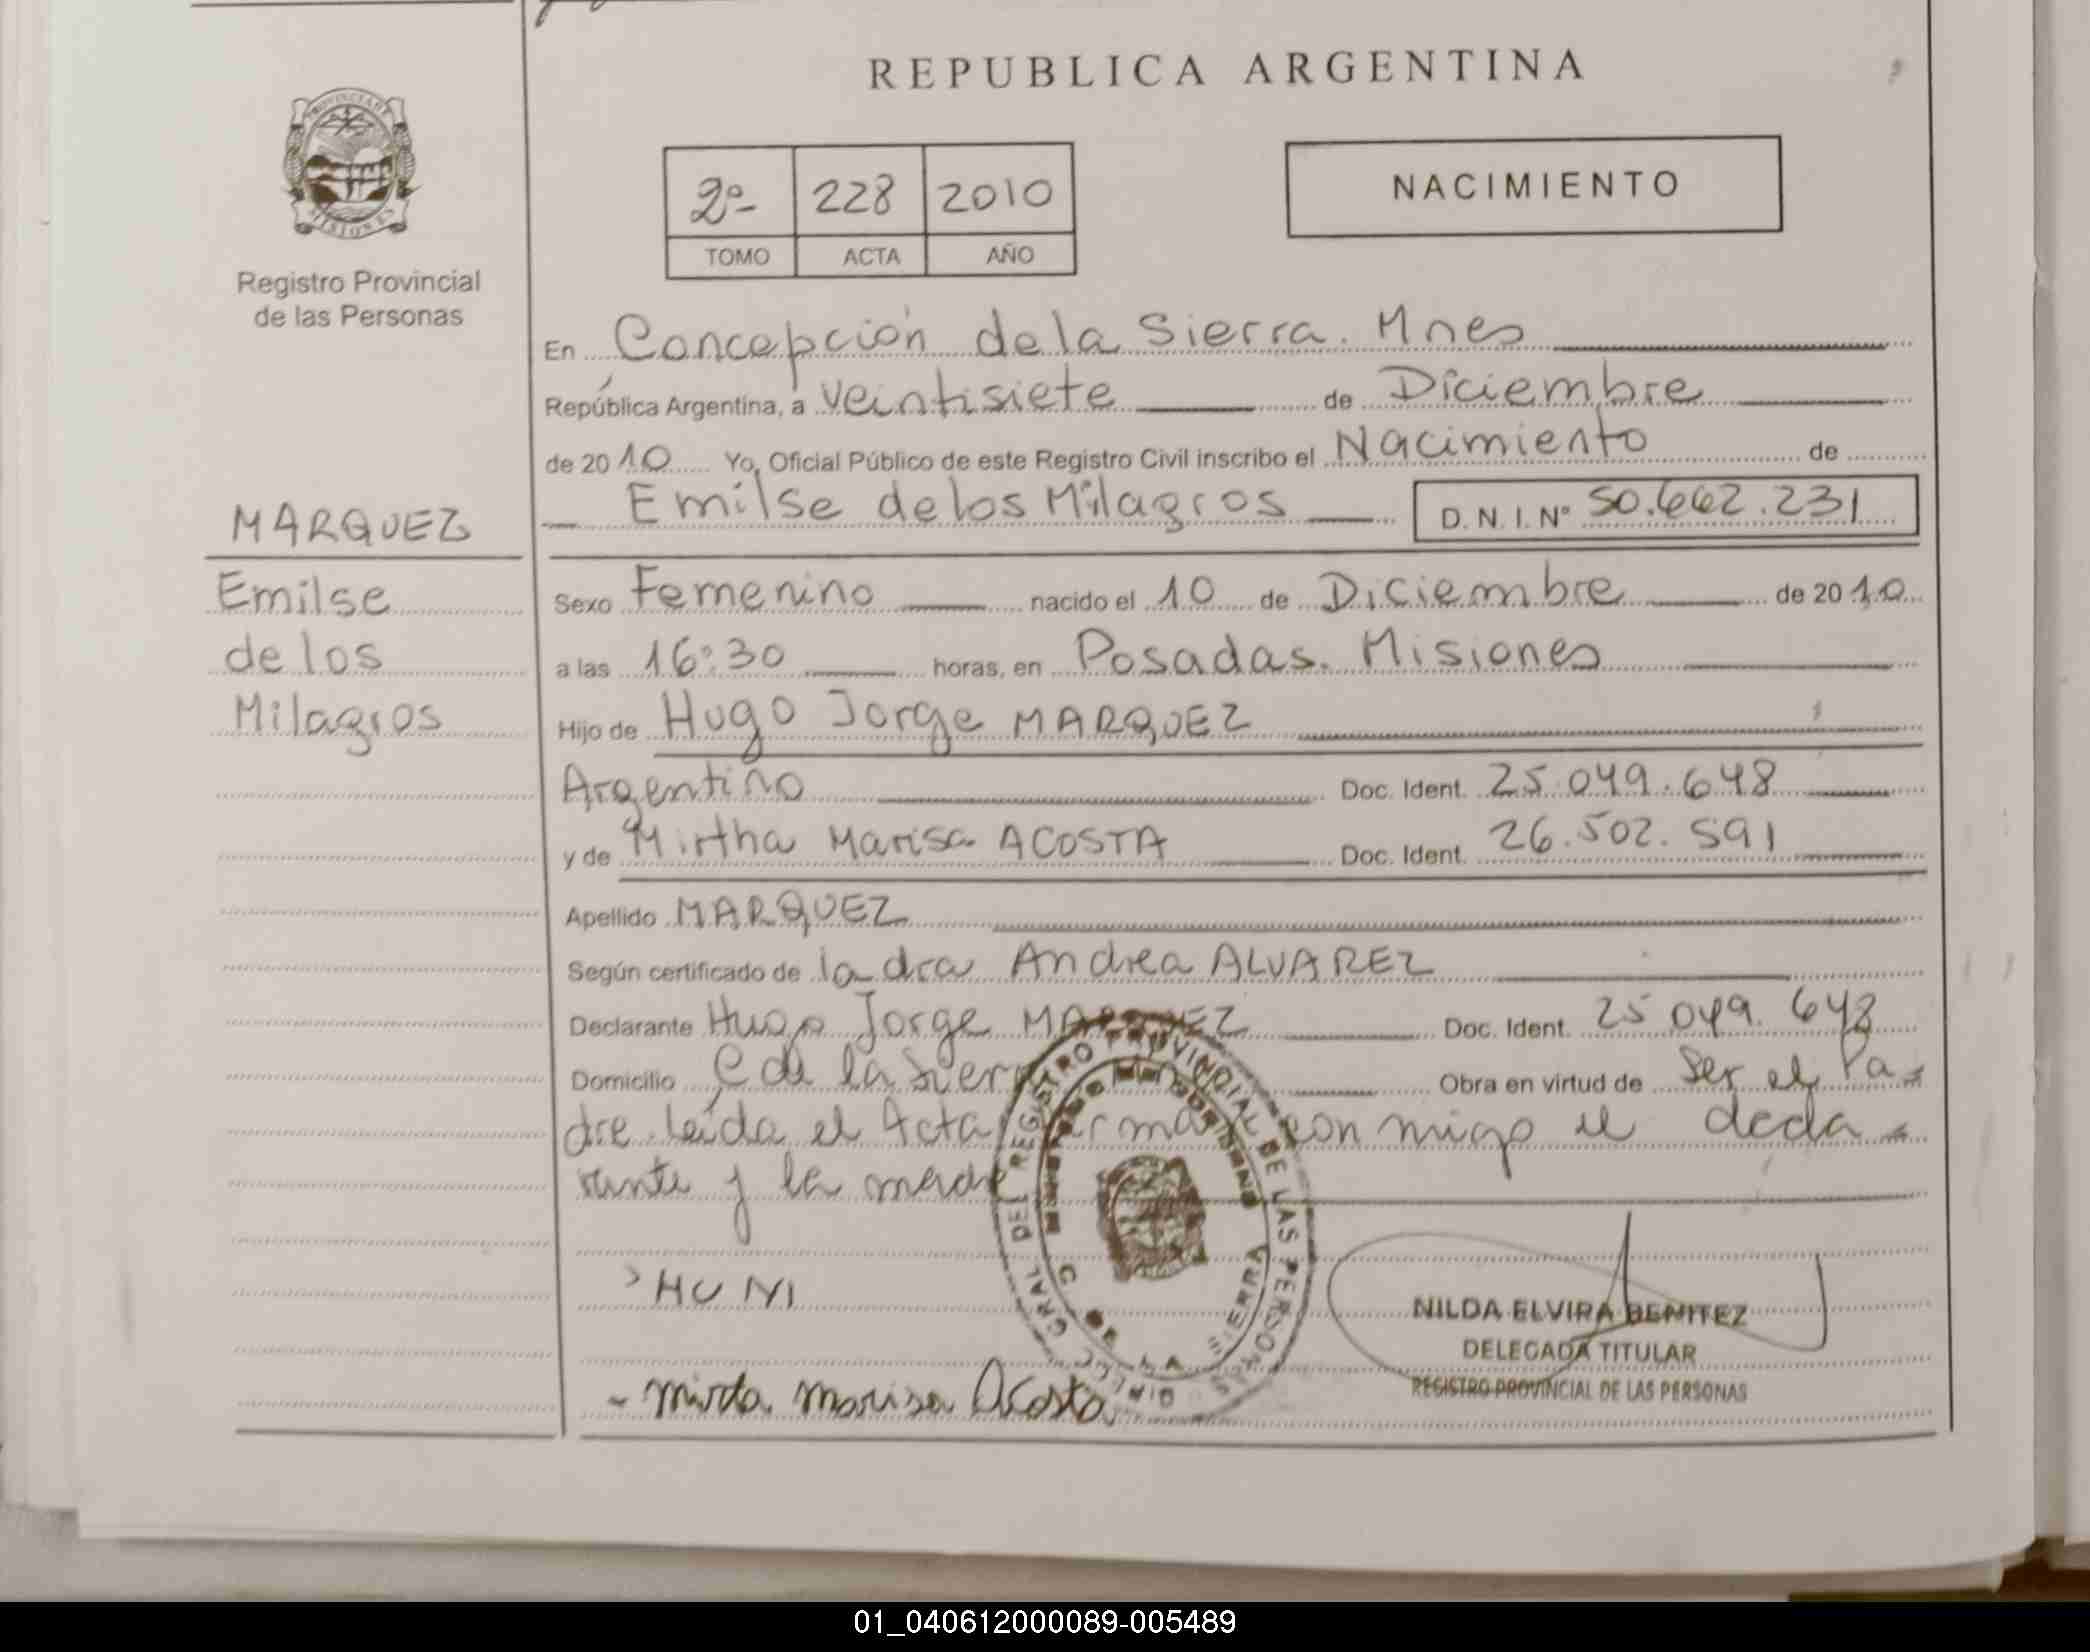 REPUBLICA ARGENTINA
2º 228 2010
TOMO ACTA AÑO
NACIMIENTO
Registro Provincial
de las Personas
MARQUEZ
Emilse
de los
Milagros
En Concepción de la Sierra. Mnes
República Argentina, a veintisiete de Diciembre
de 2010 Yo, Oficial Público de este Registro Civil inscribo el Nacimiento de
Emilse de los Milagros D. N. I. Nº 50.662.231
Sexo Femenino nacido el 10 de Diciembre de 2010
a las 16:30 horas, en Posadas. Misiones
Hijo de Hugo Jorge MARQUEZ
Argentino Doc. Ident. 25.049.648
y de Mirtha Marisa ACOSTA Doc. Ident. 26.502.591
Apellido MARQUEZ
Según certificado de la dra Andrea ALVAREZ
Declarante Hugo Jorge MARQUEZ Doc. Ident. 25 049. 648
Domicilio C de la Sierra Obra en virtud de Ser el Pa-
dre. leída el Acta firman conmigo el decla-
rante y la madre
HUNI
- mirta marisa Acosta
DIREC. GRAL. DEL REGISTRO PROVINCIAL DE LAS PERSONAS
NILDA ELVIRA BENITEZ
DELEGADA TITULAR
REGISTRO PROVINCIAL DE LAS PERSONAS
01_040612000089-005489